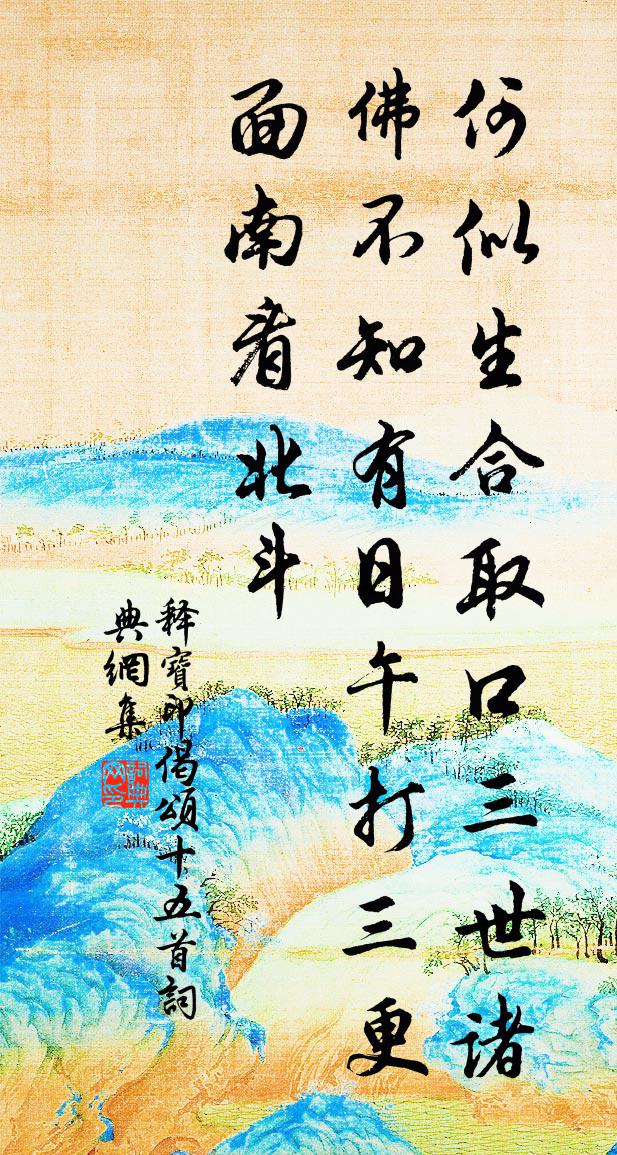 何似生合取口三世诸
佛不知有日午打三更
面南看北斗
释寶印偈頌十五首詞
典網集